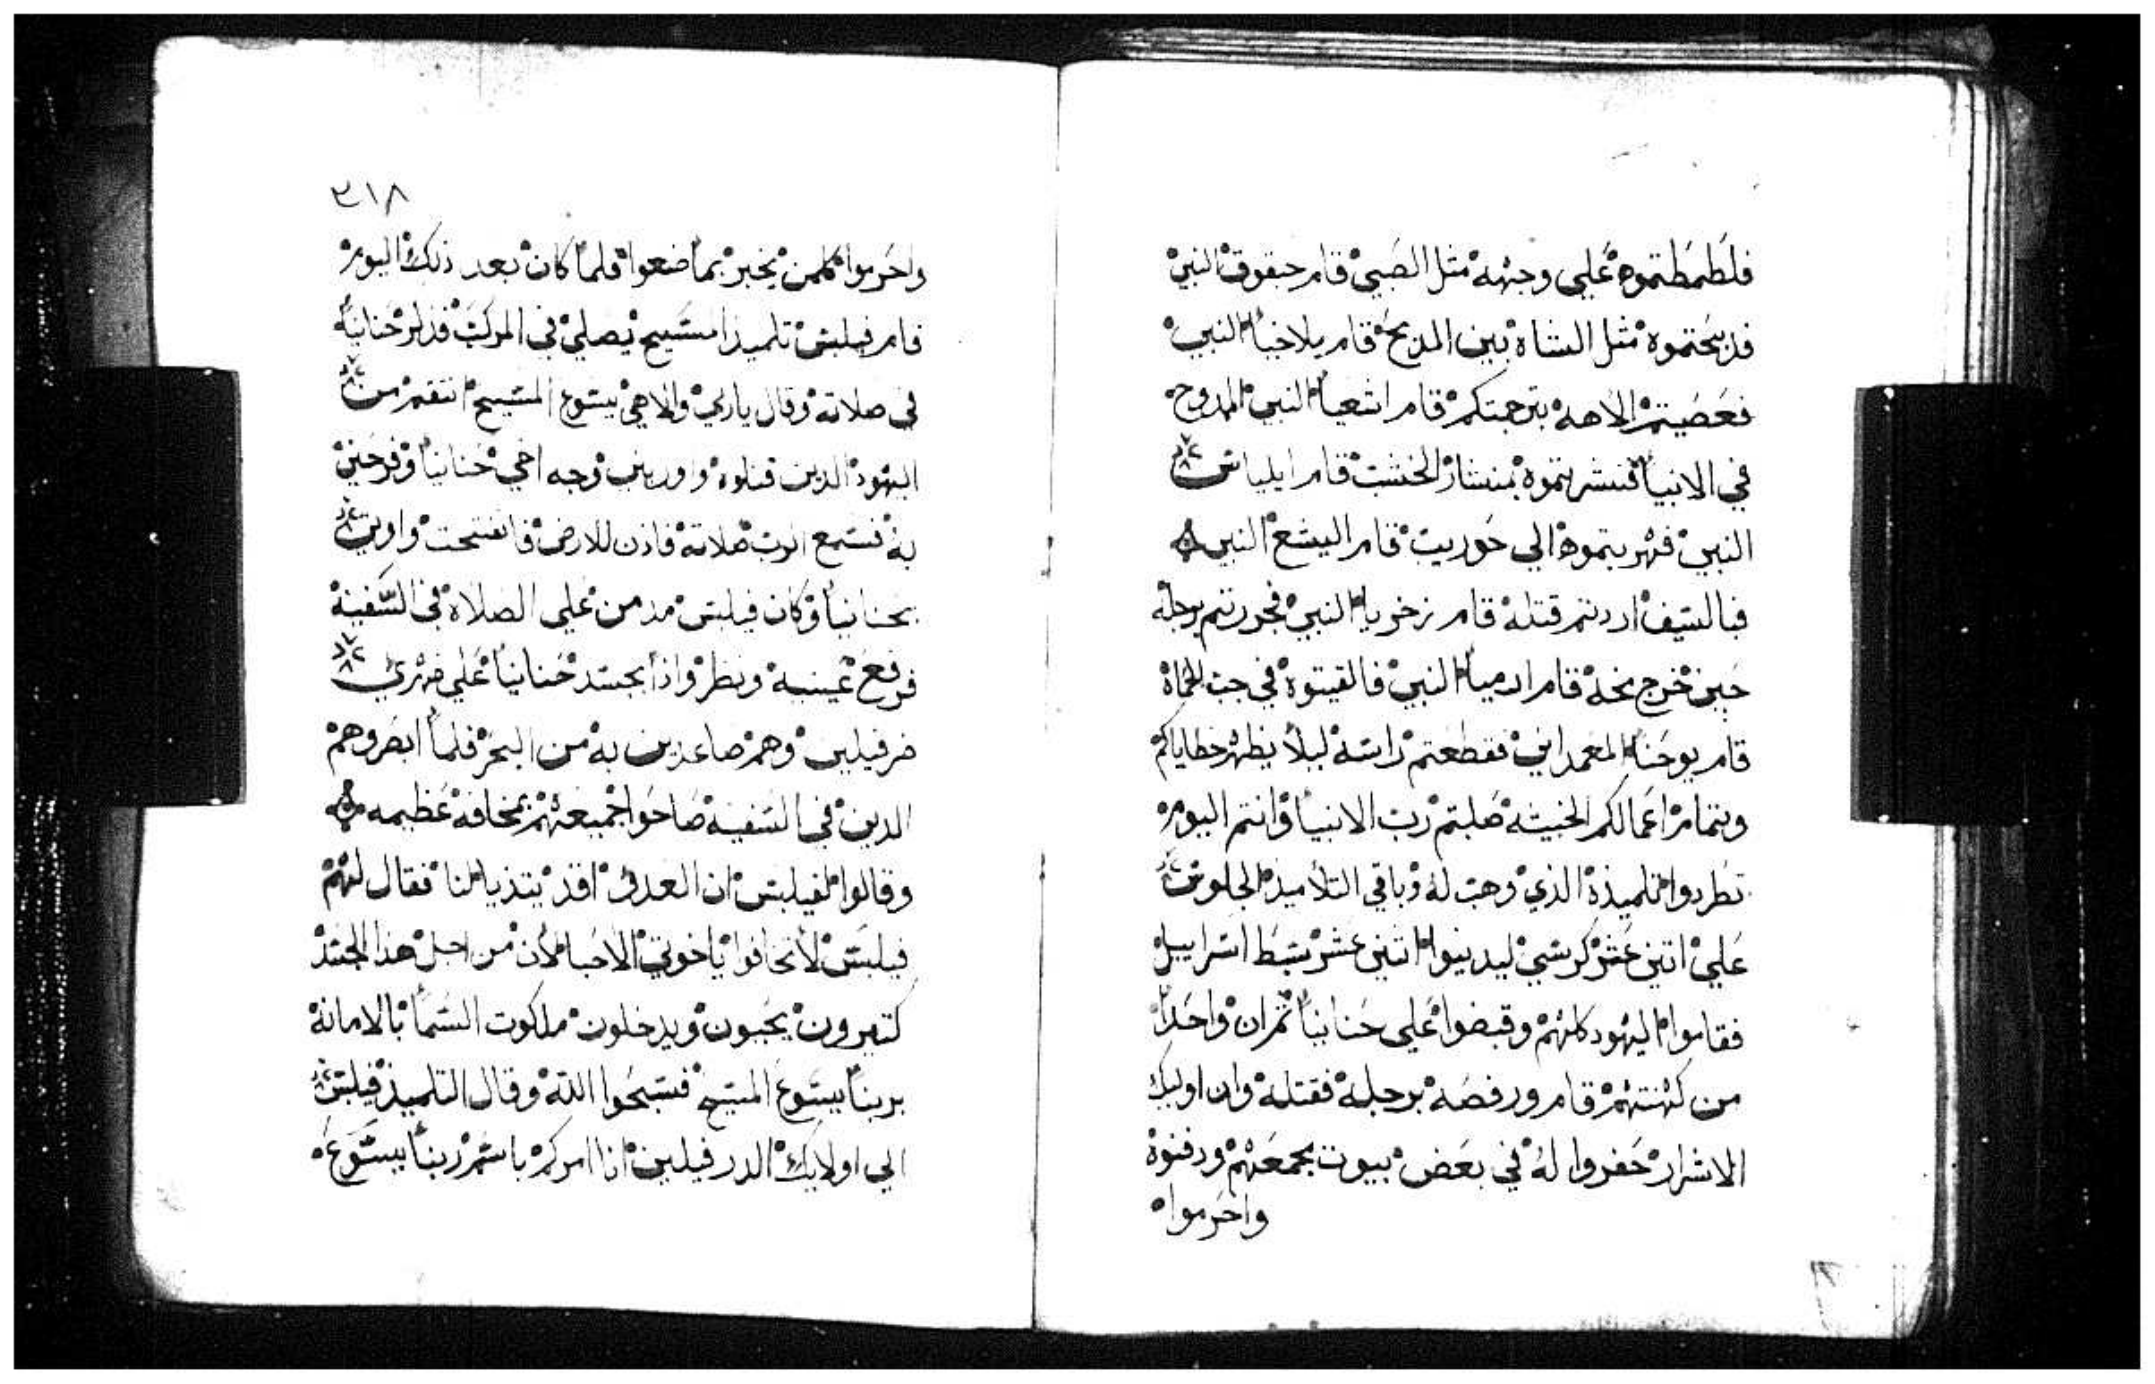 فلطمطتموه علي وجهه مثل الصبي قام حبقوق النبي
فدبحتموه مثل الشاة بين المدبح قام يلاخيا النبي
فعصيتم الاهه بترجمتكم قام اشعيا النبي الممدوح
في الانبيا فنشرتموه بمنشار الخشب قام ايلياس
النبي فهربتموه الي حوريب قام اليشع النبي
فبالسيف اردتم قتله قام زخريا النبي فجررتم برجله
حين خرج نحه قام ارميا النبي فالقيتوه في جب الحماة
قام يوحنا المعمداني فقطعتم راسه ليلا يظهر خطاياكم
وبتمام اعمالكم الخبيثه صلبتم رب الانبيا وانتم اليوم
تطردوا تلميذه الذي وهب له وباقي التلاميذ الجلوس
علي اتني عشر كرسي ليدينوا اتني عشر سبط اسراييل
فقاموا اليهود كلهم وقبضوا علي حنانيا ثم ان واحدا
من كهنتهم قام ورفصه برجله فقتله وان اوليك
الاشرار حفروا له في بعض بيوت بجمعهم ودفنوه
واحرموا
٣١٨
واحرموا كلمن يخبر بما صنعوا فلما كان بعد ذلك اليوم
قام فيلبس تلميذ المسيح يصلي في المركب فذكر حنانيا
في صلاته وقال ياربي والاهي يسوع المسيح انتقم من
اليهود الدين قتلوه واوريني وجه اخي حنانيا وفرحني
به فسمع الرب صلاته فاذن للارض فانفتحت واوت
بحنانيا وكان فيلبس مدمن علي الصلاه في السفينة
فرفع عينيه ونظر واذا بجسد حنانيا علي ضهري
ضرفيلين وهم صاعدين به من البحر فلما ابصروهم
الدين في السفينه صاحوا جميعهم بمخافة عظيمه
وقالوا لفيلبس ان العدو اقد يتذيا لنا فقال لهم
فيلبس لا تخافوا يا خوتي الاحبا لان من اجل هذا الجسد
كتيرون يجبون ويدخلون ملكوت السما بالامانة
بربنا يسوع المسيح فسبحوا الله وقال التلميذ فيلبس
الي اولايك الدرفيلين انا امركم باسم ربنا يسوع